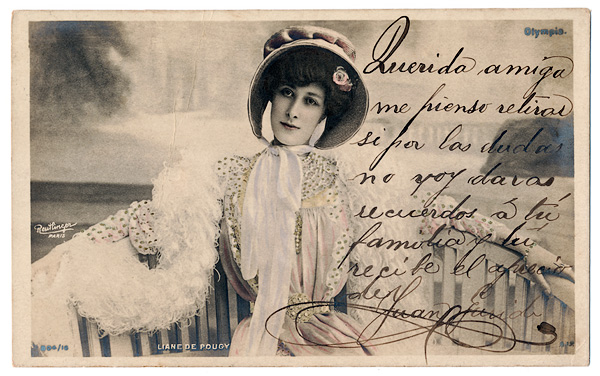 Olympia.
Querida amiga
me pienso retirar
si por las dudas
no voy daras
recuerdos á tú
familia y tú
recibe el aprecio
de Juan
Reutlinger
PARIS
LIANE DE POUGY